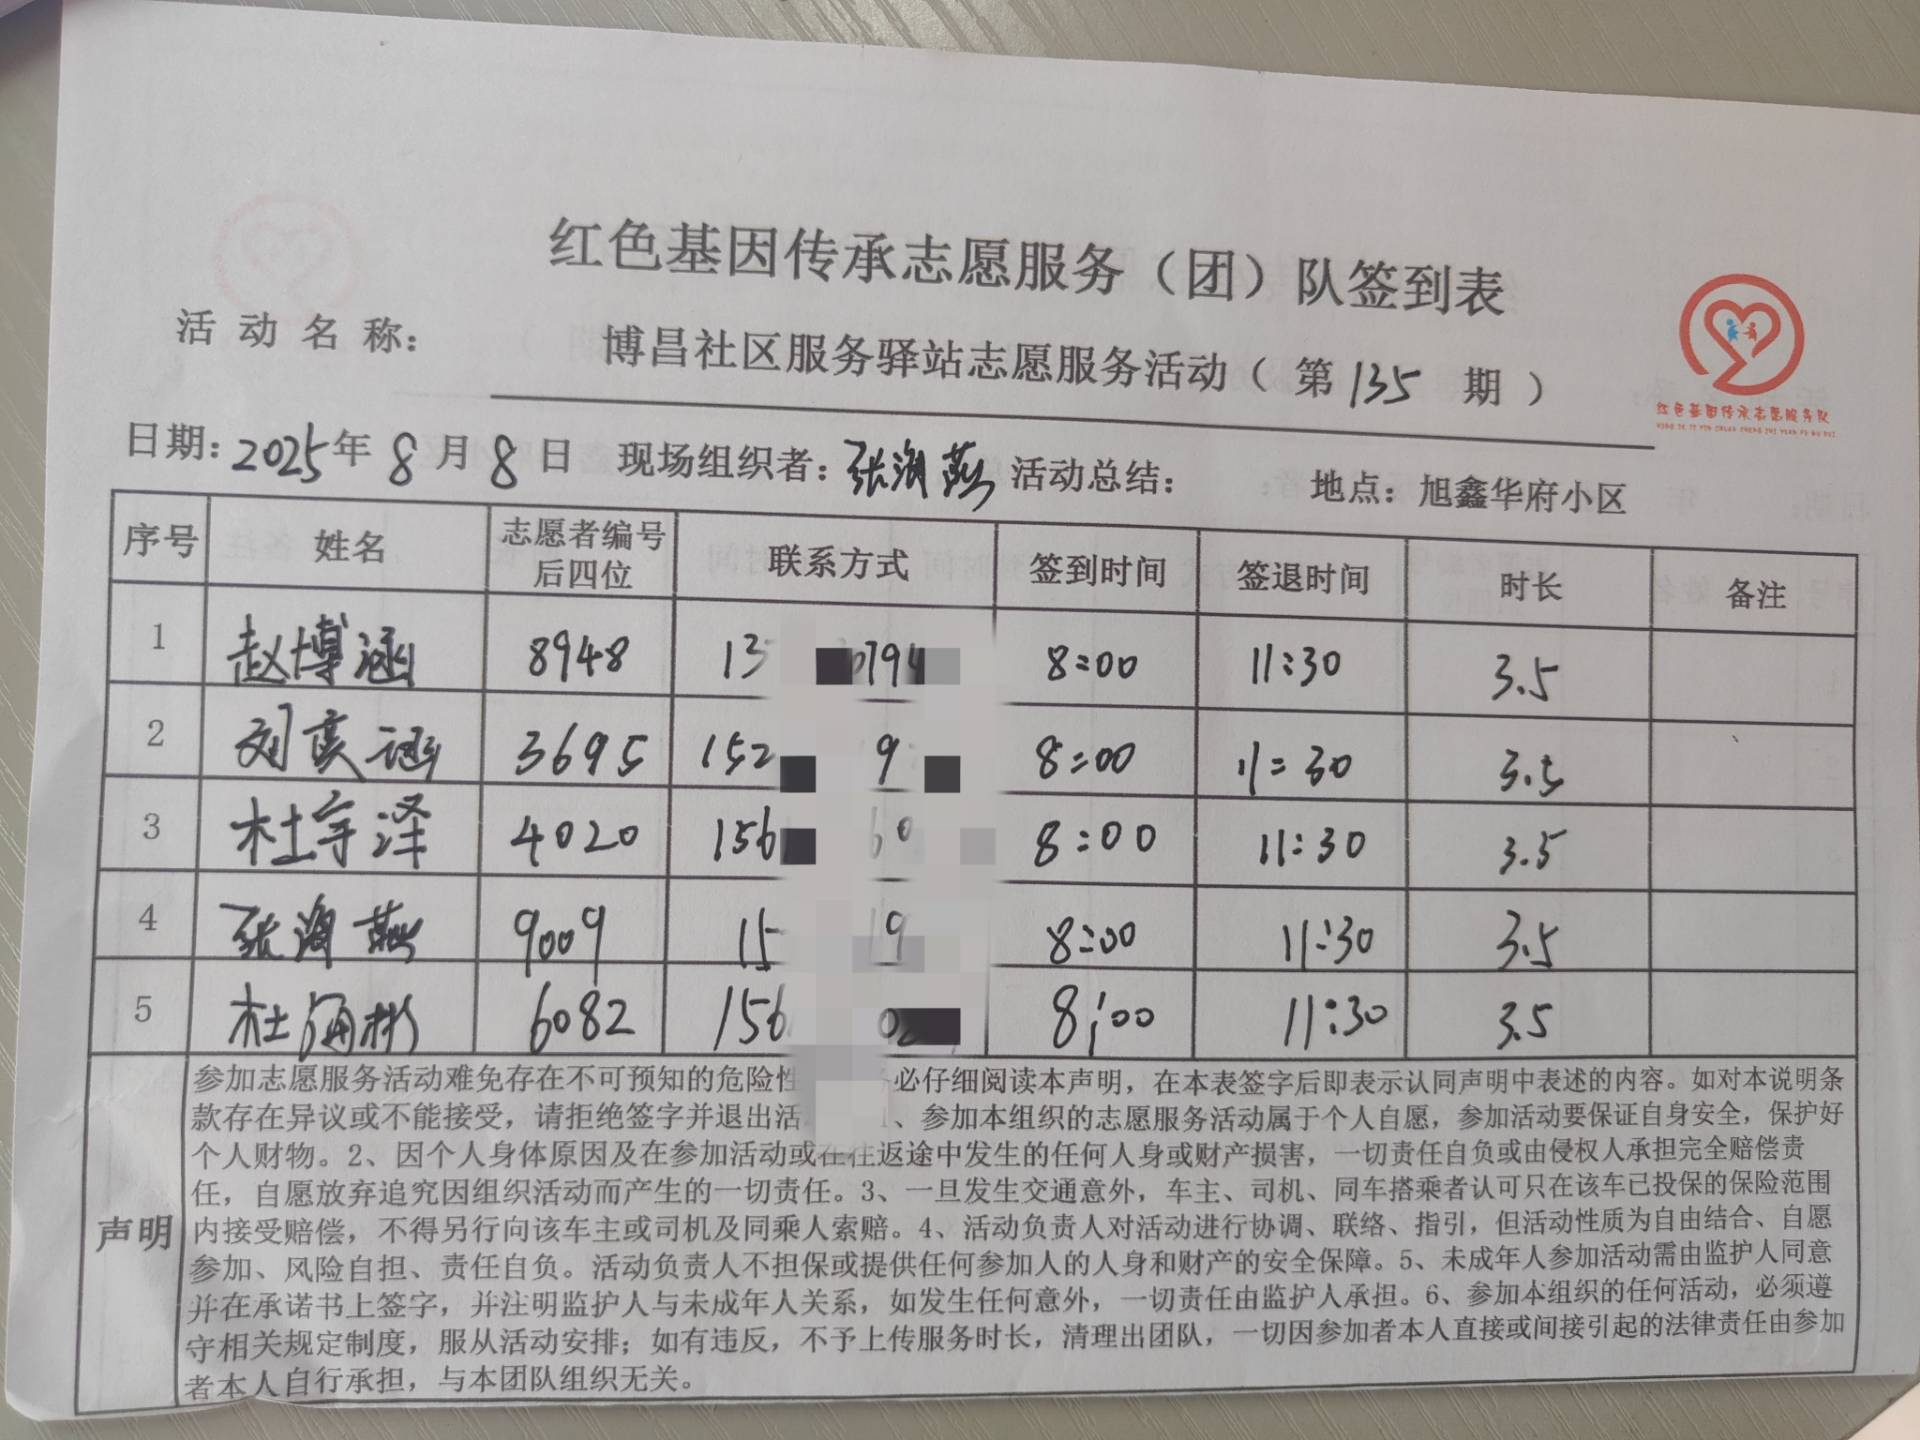 红色基因传承志愿服务（团）队签到表
活动名称： 博昌社区服务驿站志愿服务活动（第135期）
红色基因传承志愿服务队
日期：2025年8月8日 现场组织者：张海燕 活动总结： 地点：旭鑫华府小区
序号 姓名 志愿者编号后四位 联系方式 签到时间 签退时间 时长 备注
1 赵博涵 8948 13 794 8:00 11:30 3.5
2 刘奕涵 3695 152 9 8:00 11:30 3.5
3 杜宇泽 4020 156 60 8:00 11:30 3.5
4 张海燕 9009 15 19 8:00 11:30 3.5
5 杜海彬 6082 156 02 8:00 11:30 3.5
声明
参加志愿服务活动难免存在不可预知的危险性 必仔细阅读本声明，在本表签字后即表示认同声明中表述的内容。如对本说明条
款存在异议或不能接受，请拒绝签字并退出活 1、参加本组织的志愿服务活动属于个人自愿，参加活动要保证自身安全，保护好
个人财物。2、因个人身体原因及在参加活动或在往返途中发生的任何人身或财产损害，一切责任自负或由侵权人承担完全赔偿责
任，自愿放弃追究因组织活动而产生的一切责任。3、一旦发生交通意外，车主、司机、同车搭乘者认可只在该车已投保的保险范围
内接受赔偿，不得另行向该车主或司机及同乘人索赔。4、活动负责人对活动进行协调、联络、指引，但活动性质为自由结合、自愿
参加、风险自担、责任自负。活动负责人不担保或提供任何参加人的人身和财产的安全保障。5、未成年人参加活动需由监护人同意
并在承诺书上签字，并注明监护人与未成年人关系，如发生任何意外，一切责任由监护人承担。6、参加本组织的任何活动，必须遵
守相关规定制度，服从活动安排；如有违反，不予上传服务时长，清理出团队，一切因参加者本人直接或间接引起的法律责任由参加
者本人自行承担，与本团队组织无关。